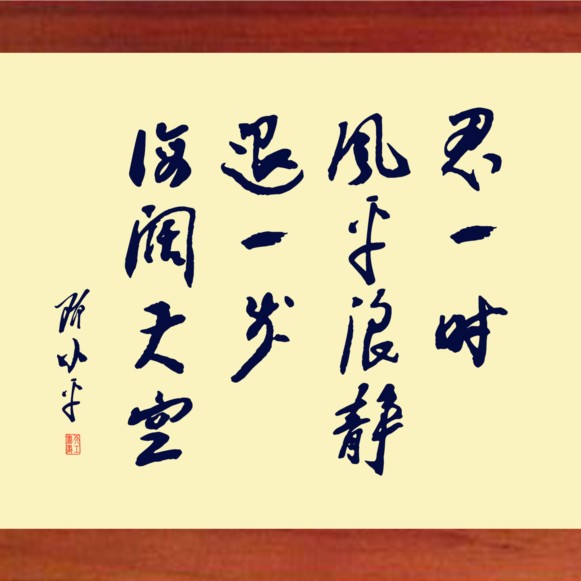 忍一时
风平浪静
退一步
海阔天空
陈小平